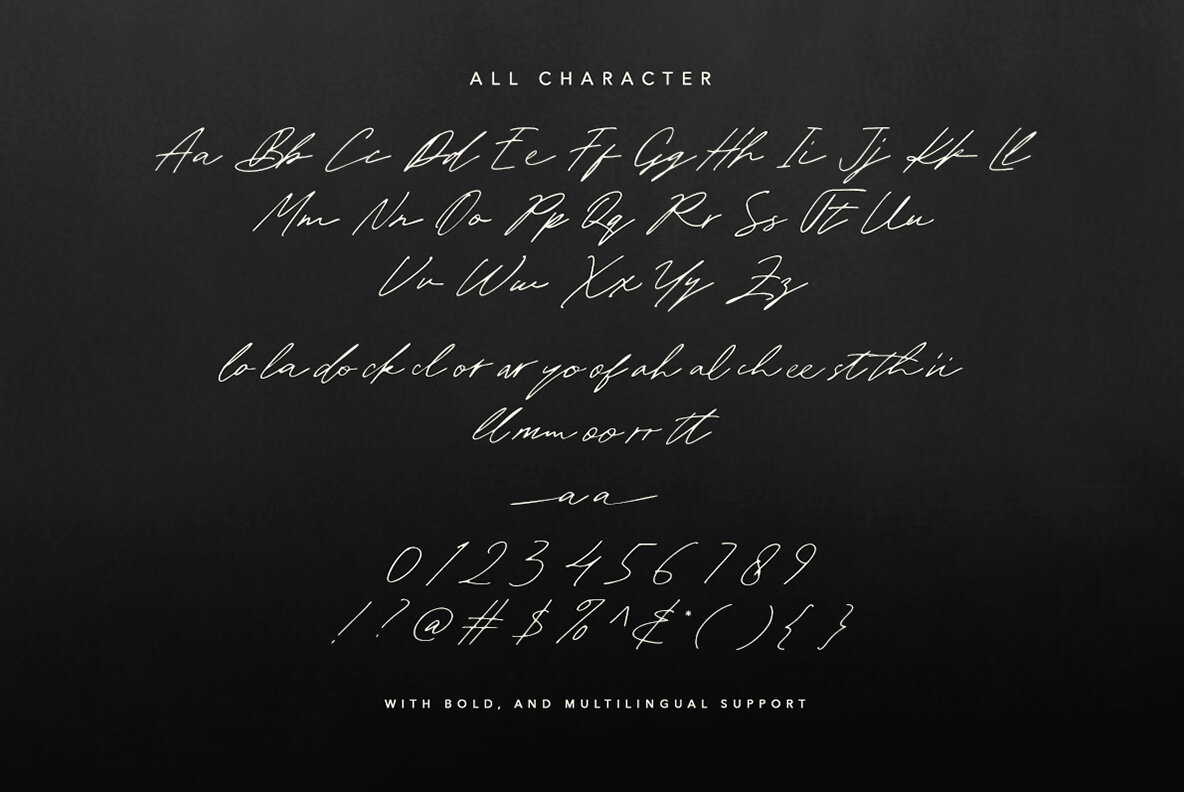 ALL CHARACTER
Aa Bb Cc Dd Ee Ff Gg Hh Ii Jj Kk Ll
Mm Nn Oo Pp Qq Rr Ss Tt Uu
Vv Ww Xx Yy Zz
lo la do ck cl or ar yo of ah al ch ee st th ii
ll mm oo rr tt
a a
0 1 2 3 4 5 6 7 8 9
! ? @ # $ % ^ & * ( ) { }
WITH BOLD, AND MULTILINGUAL SUPPORT